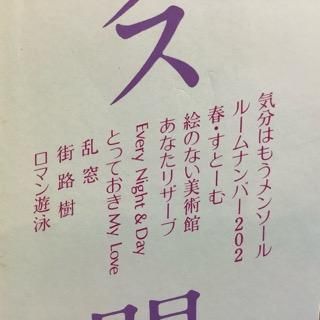 ス
気分はもうメンソール
ルームナンバー202
春・すとーむ
絵のない美術館
あなたリザーブ
Every Night & Day
とっておきMy Love
乱窓
街路樹
ロマン遊泳